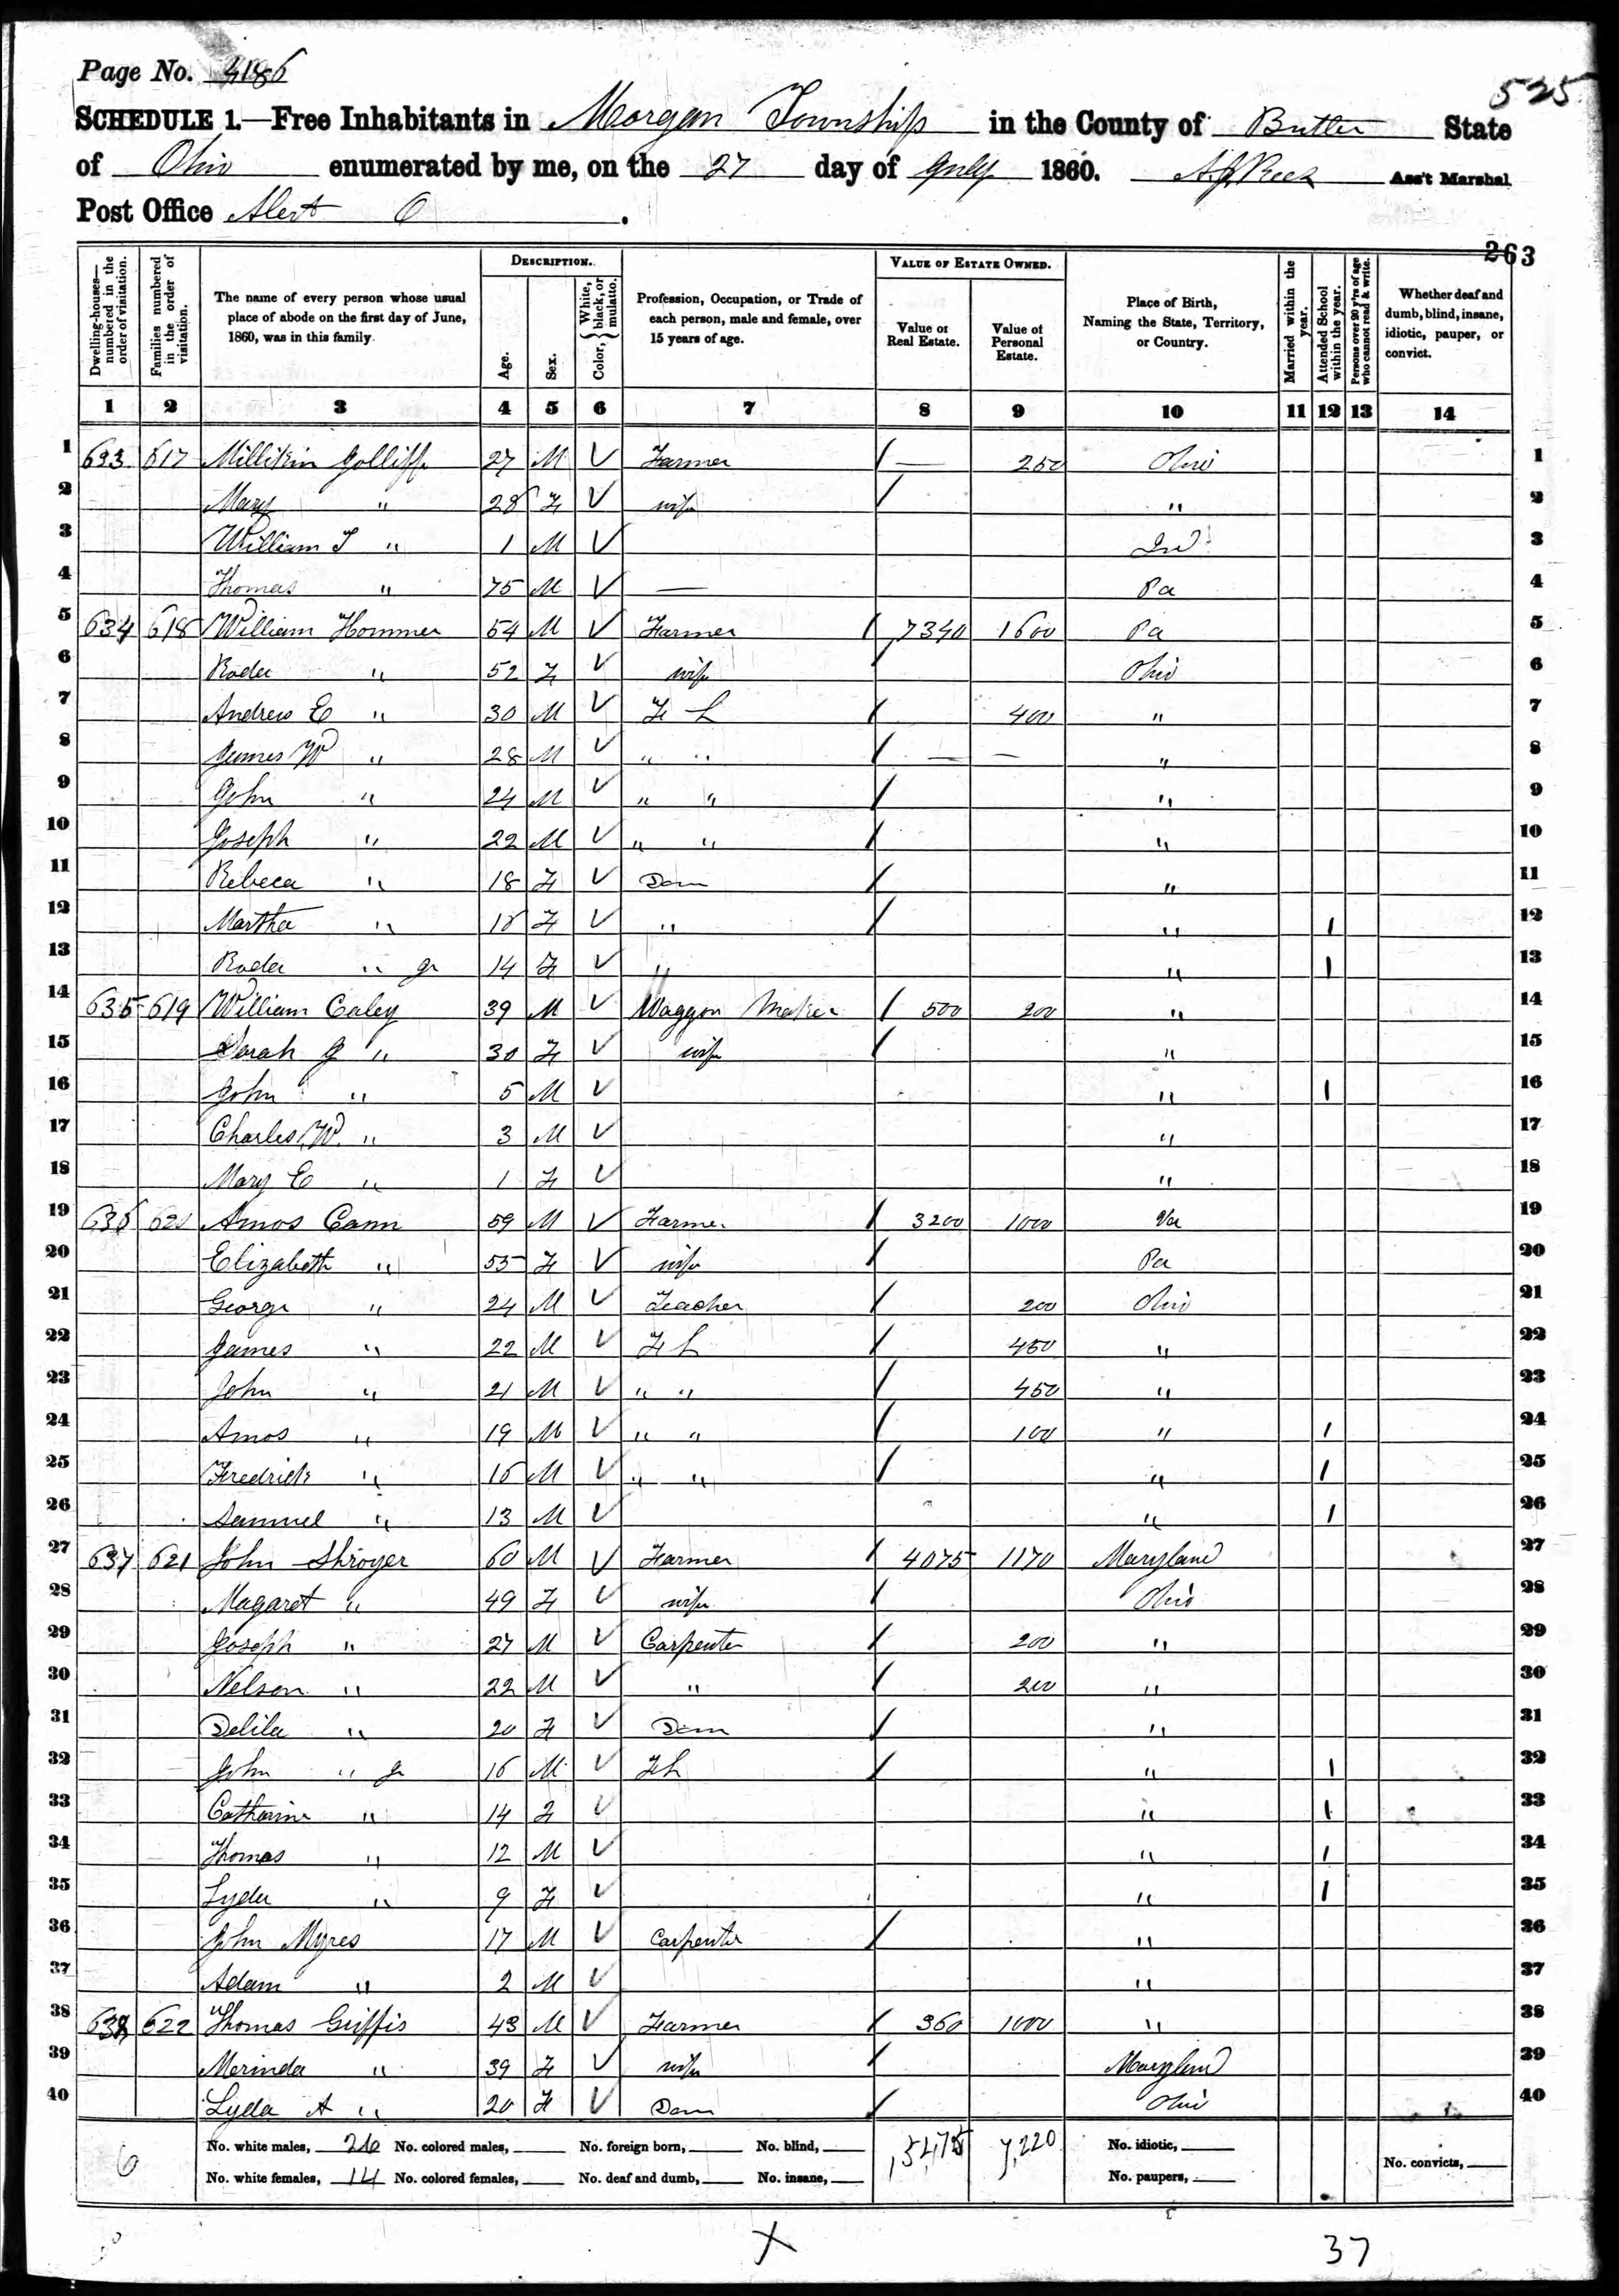 Page No. 186
525
SCHEDULE 1.—Free Inhabitants in Morgan Township in the County of Butler State
of Ohio enumerated by me, on the 27 day of July 1860. Ass't Marshal
Post Office Alert O.
263
Dwelling-houses—numbered in the order of visitation.
Families numbered in the order of visitation.
The name of every person whose usual place of abode on the first day of June, 1860, was in this family.
DESCRIPTION.
Age.
Sex.
Color, { White, black, or mulatto.
Profession, Occupation, or Trade of each person, male and female, over 15 years of age.
VALUE OF ESTATE OWNED.
Value of Real Estate.
Value of Personal Estate.
Place of Birth, Naming the State, Territory, or Country.
Married within the year.
Attended School within the year.
Persons over 20 y'rs of age who cannot read & write.
Whether deaf and dumb, blind, insane, idiotic, pauper, or convict.
1 2 3 4 5 6 7 8 9 10 11 12 13 14
1 633 617 Millikin Golliff 27 M V Farmer / — 250 Ohio 1
2 Mary " 28 F V wife / " 2
3 William T " 1 M V Ind 3
4 Thomas " 75 M V — Pa 4
5 634 618 William Hommer 54 M V Farmer / 7340 1600 Pa 5
6 Roda " 52 F V wife / Ohio 6
7 Andrew E " 30 M V F L / 400 " 7
8 James W " 28 M V " " / — — " 8
9 John " 24 M V " " / " 9
10 Joseph " 22 M V " " / " 10
11 Rebeca " 18 F V Dom / " 11
12 Martha " 16 F V " / " 1 12
13 Roda " Jr 14 F V " " 1 13
14 635 619 William Caley 39 M V Waggon Maker / 500 200 " 14
15 Sarah J " 30 F V wife / " 15
16 John " 5 M V " 1 16
17 Charles W. " 3 M V " 17
18 Mary E " 1 F V " 18
19 636 620 Amos Cann 59 M V Farmer / 3200 1000 Va 19
20 Elizabeth " 55 F V wife / Pa 20
21 George " 24 M V Teacher / 200 Ohio 21
22 James " 22 M V F L / 450 " 22
23 John " 21 M V " " / 450 " 23
24 Amos " 19 M V " " / 100 " 1 24
25 Fredrick " 16 M V " " / " 1 25
26 Samuel " 13 M V " 1 26
27 637 621 John Shroyer 60 M V Farmer / 4075 1170 Maryland 27
28 Magaret " 49 F V wife / Ohio 28
29 Joseph " 27 M V Carpenter / 200 " 29
30 Nelson " 22 M V " / 200 " 30
31 Delila " 20 F V Dom / " 31
32 John " Jr 16 M V F L / " 1 32
33 Catharine " 14 F V " 1 33
34 Thomas " 12 M V " 1 34
35 Lyda " 9 F V " 1 35
36 John Myres 17 M V Carpenter / " 36
37 Adam " 2 M V " 37
38 638 622 Thomas Griffis 43 M V Farmer / 360 1000 " 38
39 Merinda " 39 F V wife / Maryland 39
40 Lyda A " 20 F V Dom / Ohio 40
6 No. white males, 26 No. colored males, No. foreign born, No. blind, 15,475 7,220 No. idiotic,
No. white females, 14 No. colored females, No. deaf and dumb, No. insane, No. paupers, No. convicts,
X 37